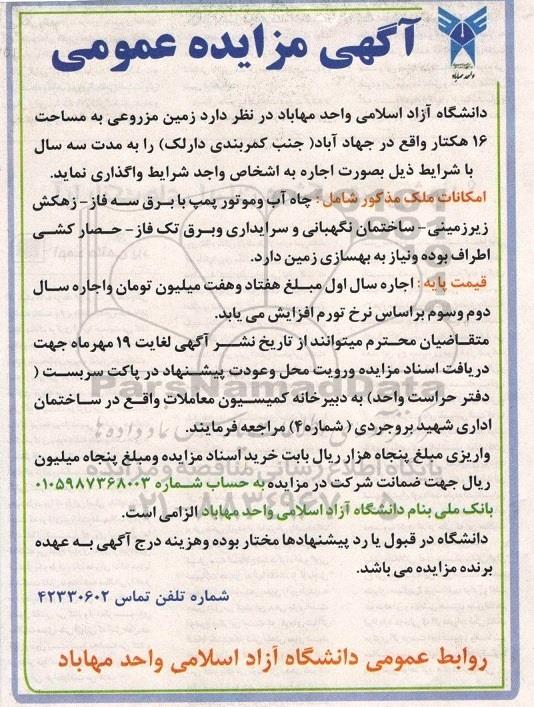 آگهی مزایده عمومی
واحد مهاباد
دانشگاه آزاد اسلامی واحد مهاباد در نظر دارد زمین مزروعی به مساحت
۱۶ هکتار واقع در جهاد آباد( جنب کمربندی دارلک) را به مدت سه سال
با شرایط ذیل بصورت اجاره به اشخاص واجد شرایط واگذاری نماید.
امکانات ملک مذکور شامل : چاه آب وموتور پمپ با برق سه فاز- زهکش
زیرزمینی- ساختمان نگهبانی و سرایداری وبرق تک فاز- حصار کشی
اطراف بوده ونیاز به بهسازی زمین دارد.
قیمت پایه : اجاره سال اول مبلغ هفتاد وهفت میلیون تومان واجاره سال
دوم وسوم براساس نرخ تورم افزایش می یابد.
متقاضیان محترم میتوانند از تاریخ نشر آگهی لغایت ۱۹ مهرماه جهت
دریافت اسناد مزایده ورویت محل وعودت پیشنهاد در پاکت سربست (
دفتر حراست واحد) به دبیرخانه کمیسیون معاملات واقع در ساختمان
اداری شهید بروجردی ( شماره۴) مراجعه فرمایند.
واریزی مبلغ پنجاه هزار ریال بابت خرید اسناد مزایده ومبلغ پنجاه میلیون
ریال جهت ضمانت شرکت در مزایده به حساب شماره ۰۱۰۵۹۸۷۳۶۸۰۰۳
بانک ملی بنام دانشگاه آزاد اسلامی واحد مهاباد الزامی است.
دانشگاه در قبول یا رد پیشنهادها مختار بوده وهزینه درج آگهی به عهده
برنده مزایده می باشد.
شماره تلفن تماس ۴۲۳۳۰۶۰۲
روابط عمومی دانشگاه آزاد اسلامی واحد مهاباد
ParsNamadData
پایگاه اطلاع رسانی مناقصه و مزایده
۰۲۱-۸۸۳۴۹۶۷۰-۵